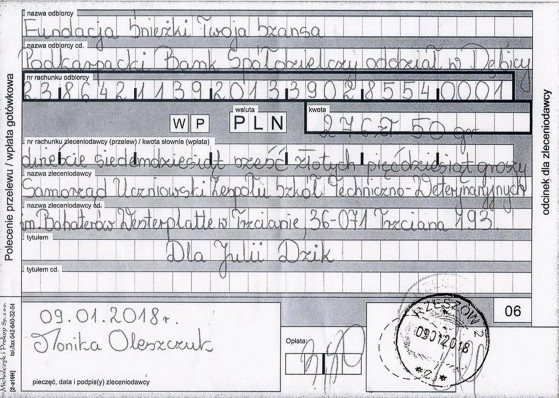 nazwa odbiorcy
Fundacja Śnieżki Twoja Szansa
nazwa odbiorcy cd.
Podkarpacki Bank Spółdzielczy oddział w Dębicy
nr rachunku odbiorcy
23 8642 1139 2013 3902 8554 0001
W P
waluta
PLN
kwota
276 zł 50 gr
nr rachunku zleceniodawcy (przelew) / kwota słownie (wpłata)
dwieście siedemdziesiąt sześć złotych pięćdziesiąt groszy
nazwa zleceniodawcy
Samorząd Uczniowski Zespołu Szkół Techniczno-Weterynaryjnych
nazwa zleceniodawcy cd.
im. Bohaterów Westerplatte w Trzcianie, 36-071 Trzciana 193
tytułem
Dla Julii Dzik
tytułem cd.
Polecenie przelewu / wpłata gotówkowa
odcinek dla zleceniodawcy
06
09.01.2018 r.
Monika Oleszczuk
pieczęć, data i podpis(y) zleceniodawcy
Opłata:
RZESZÓW 2
09012018